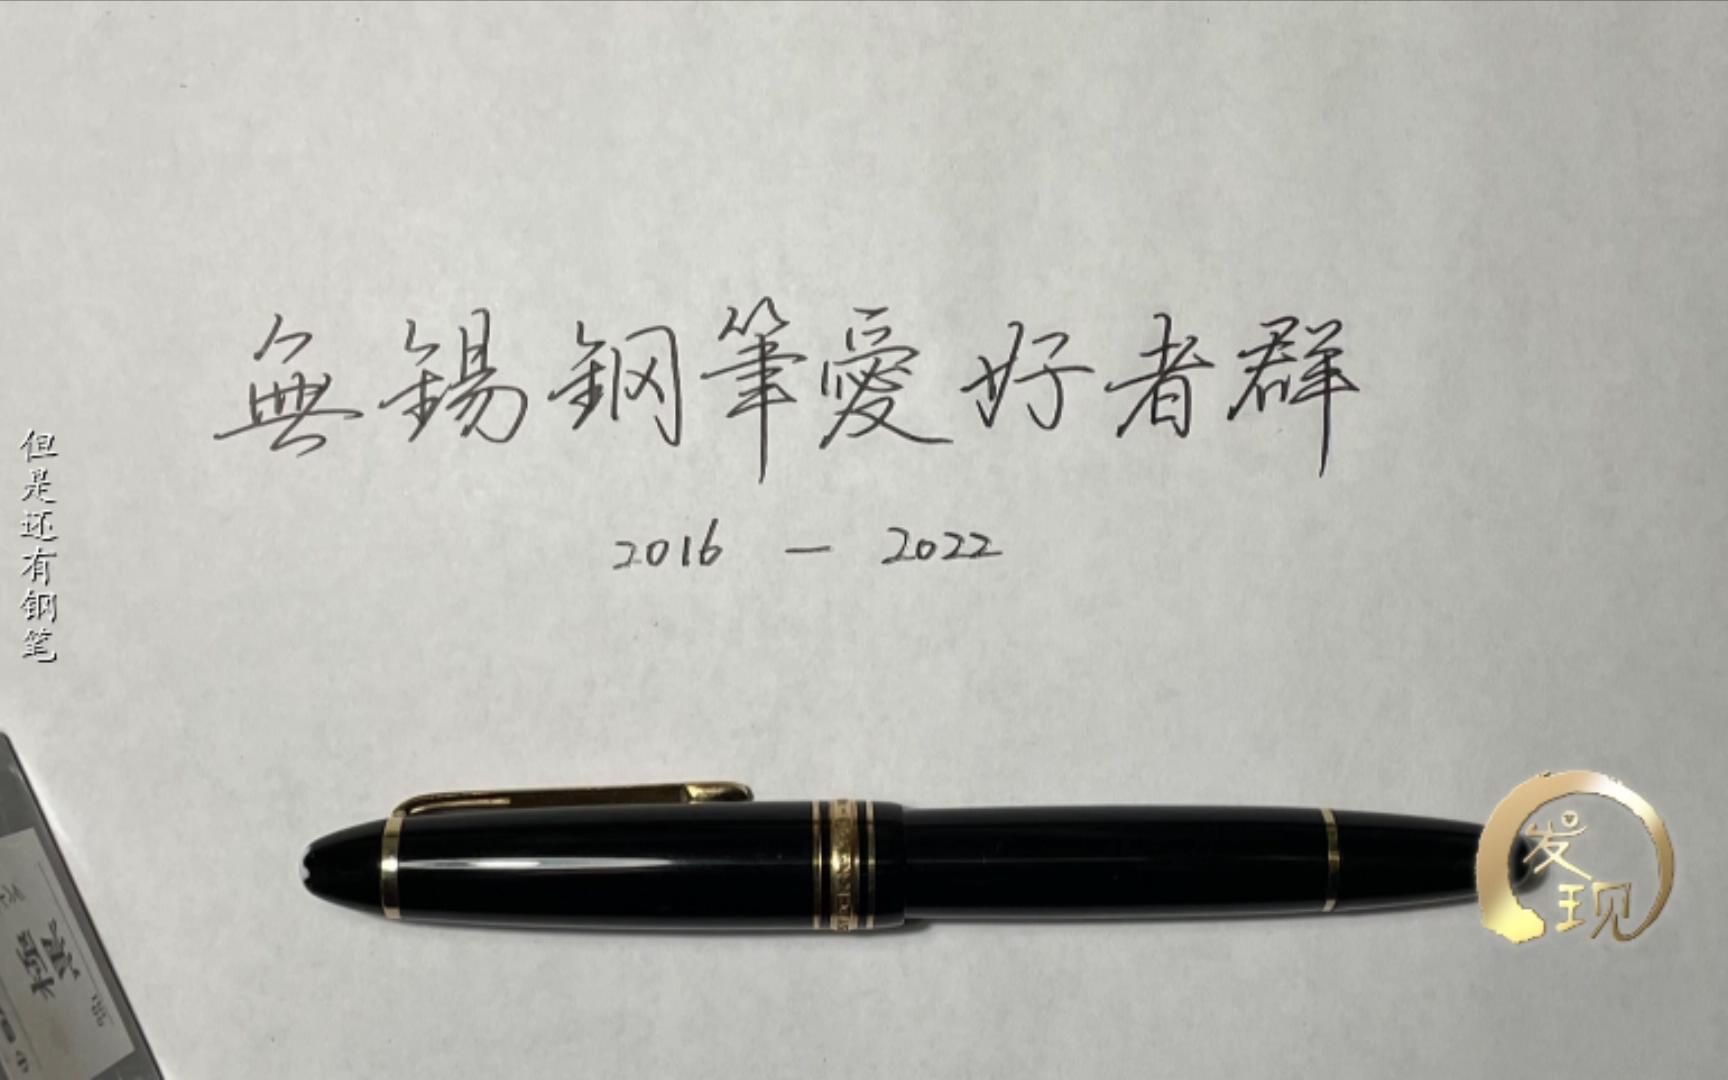 無錫鋼筆愛好者群
2016 — 2022
但是还有钢笔
发现